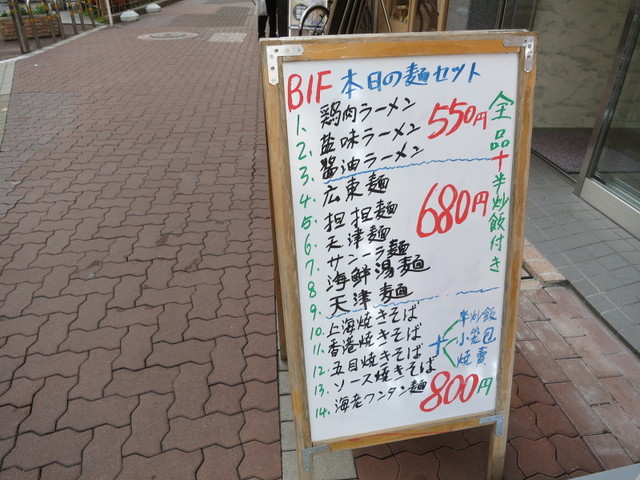 B1F 本日の麺セット
1. 鶏肉ラーメン
2. 塩味ラーメン
3. 醤油ラーメン
550円
4. 広東麺
5. 担担麺
6. 天津麺
7. サンラ麺
8. 海鮮湯麺
9. 天津麺
680円
10. 上海焼きそば
11. 香港焼きそば
12. 五目焼きそば
13. ソース焼きそば
14. 海老ワンタン麺
+
半炒飯
小笼包
焼賣
800円
全品+半炒飯付き